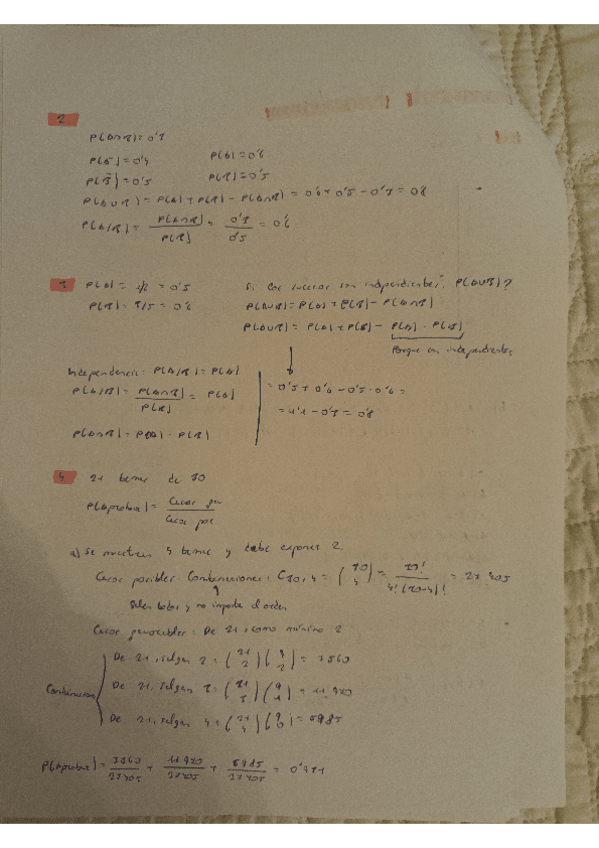 2
P(A∩B)=0'3
P(Ā)=0'4 P(A)=0'6
P(B̄)=0'5 P(B)=0'5
P(A∪B)=P(A)+P(B)-P(A∩B)=0'6+0'5-0'3=0'8
P(A/B)=P(A∩B)/P(B)=0'3/0'5=0'6
3 P(A)=1/2=0'5 Si los sucesos son independientes, P(A∪B)?
P(B)=3/5=0'6 P(A∪B)=P(A)+P(B)-P(A∩B)
P(A∪B)=P(A)+P(B)-P(A)·P(B)
Porque son independientes
Independencia: P(A/B)=P(A)
P(A/B)=P(A∩B)/P(B)=P(A) =0'5+0'6-0'5·0'6=
=1'1-0'3=0'8
P(A∩B)=P(A)·P(B)
4 21 temas de 30
P(aprobar)=Casos fav/Casos pos
a) Se muestran 4 temas y debe exponer 2.
Casos posibles: Combinaciones: C30,4=(30 4)=30!/4!(30-4)!=27405
Salen todos y no importa el orden
Casos favorables: De 21, como mínimo 2
De 21, salgan 2=(21 2)(9 2)=7560
Combinación De 21, salgan 3=(21 3)(9 1)=11970
De 21, salgan 4=(21 4)(9 0)=5985
P(aprobar)=7560/27405+11970/27405+5985/27405=0'931